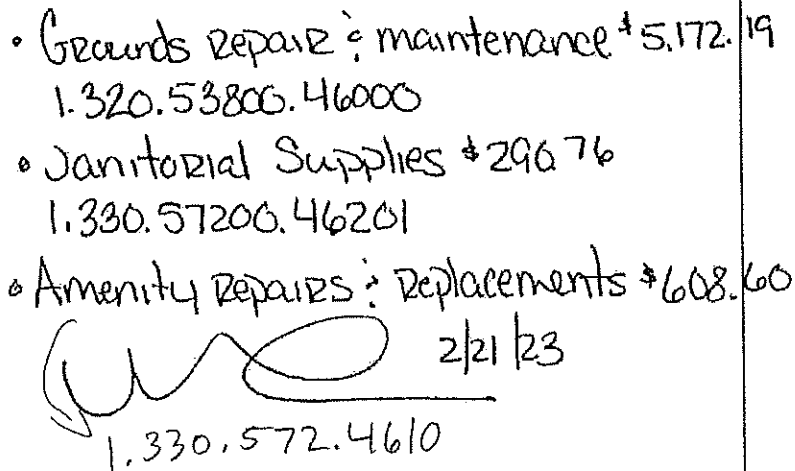 • Grounds Repair & maintenance $5,172.19
1.320.53800.46000
• Janitorial Supplies $290.76
1.330.57200.46201
• Amenity Repairs & Replacements $608.60
2/21/23
1.330.572.4610